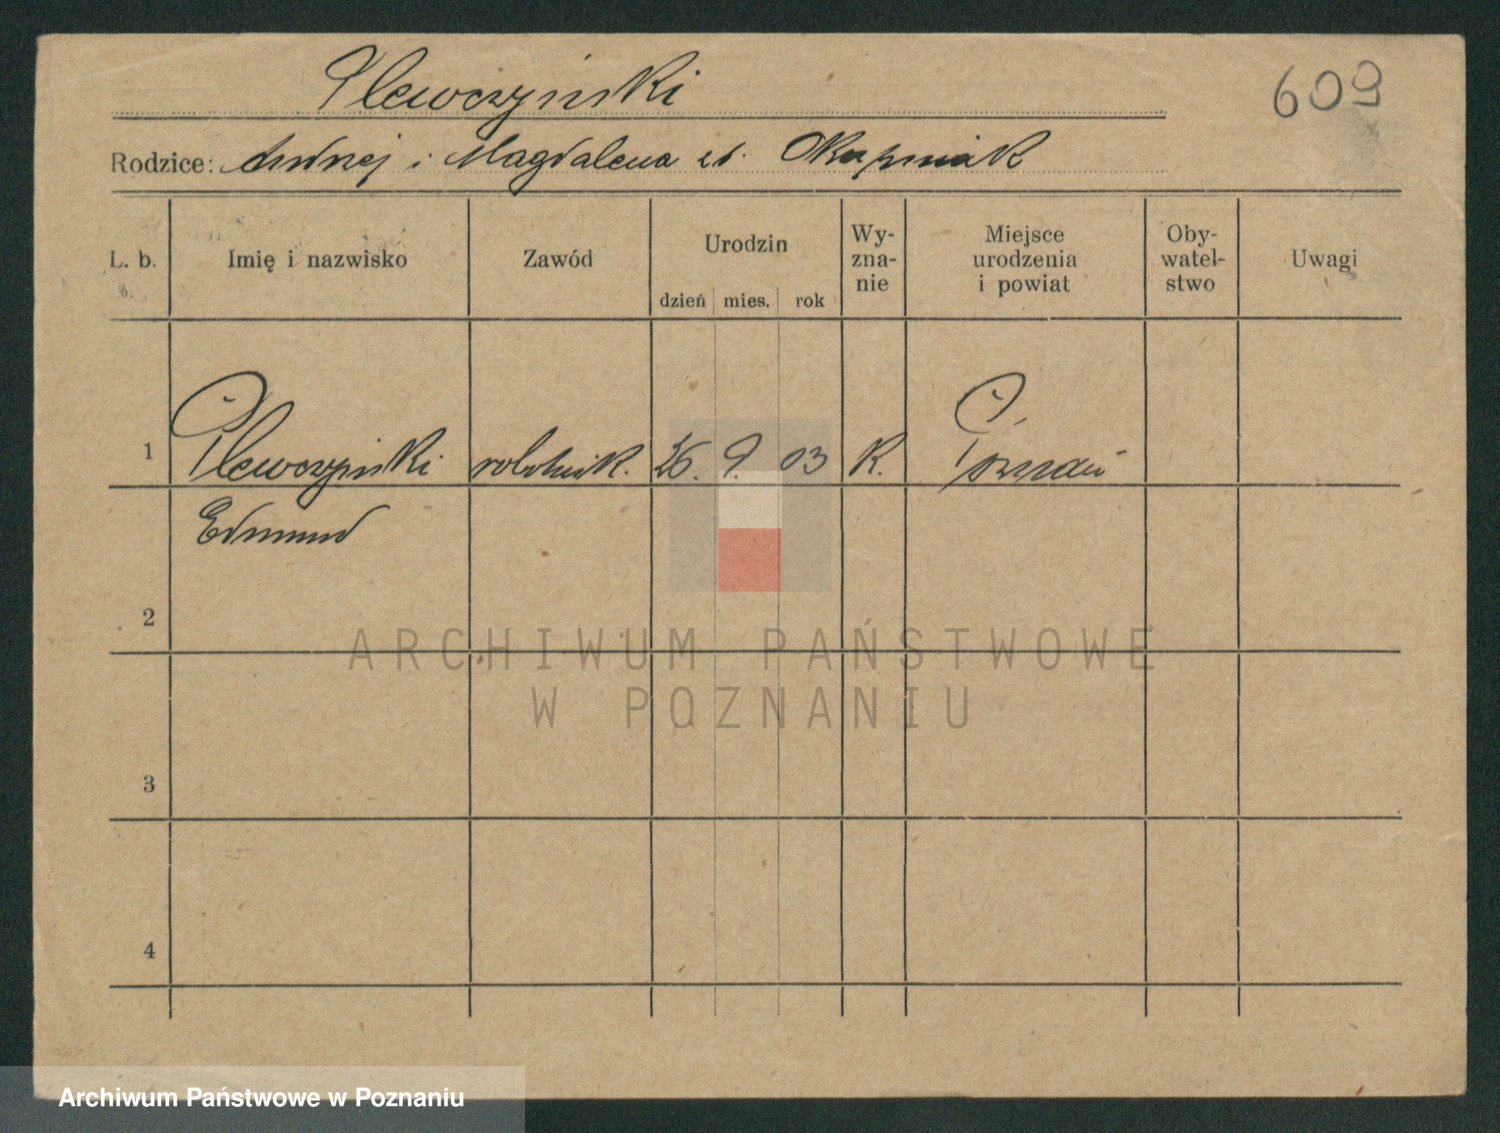 Plewczyński
609
Rodzice: Andrzej i Magdalena z d.
L. b.
Imię i nazwisko
Zawód
Urodzin
dzień mies. rok
Wy-
zna-
nie
Miejsce
urodzenia
i powiat
Oby-
watel-
stwo
Uwagi
1 Plewczyński robotnik. 26. 9. 03 R. Poznań
Edmund
2
3
4
ARCHIWUM PAŃSTWOWE
W POZNANIU
Archiwum Państwowe w Poznaniu